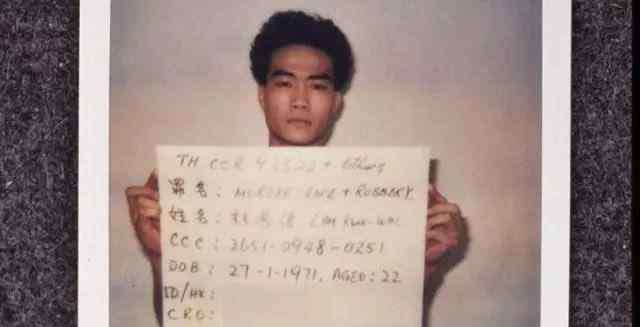 TH CCR + others
罪名 : MURDER RAPE + ROBBERY
姓名 : LAM KWOK-WAI
CCC : 2651-0948-0251
DOB : 27-1-1971, AGED : 22
ID/HK :
C.R.O :